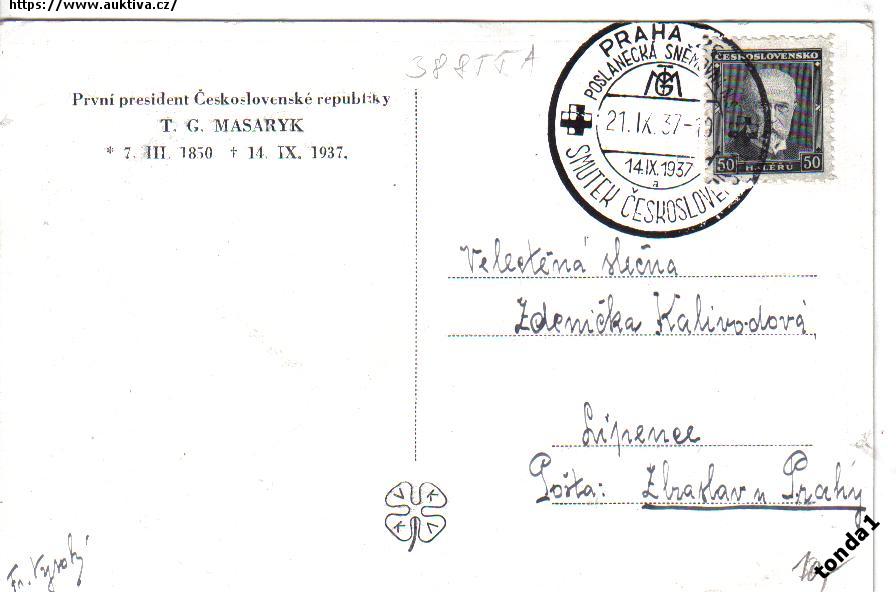 https://www.auktiva.cz/
První president Československé republiky
T. G. MASARYK
* 7. III. 1850 † 14. IX. 1937.
388TTA
PRAHA
POSLANECKÁ
21. IX. 37-
14.IX.1937
a
SMUTEK
ČESKOSLOVENSKO
50 HALÉRU 50
Velectěná slečna
Zdenička Kalivodová
Lipence
Pošta: Zbraslav u Prahy
V K
K V
Fr. Vysoký
tonda1